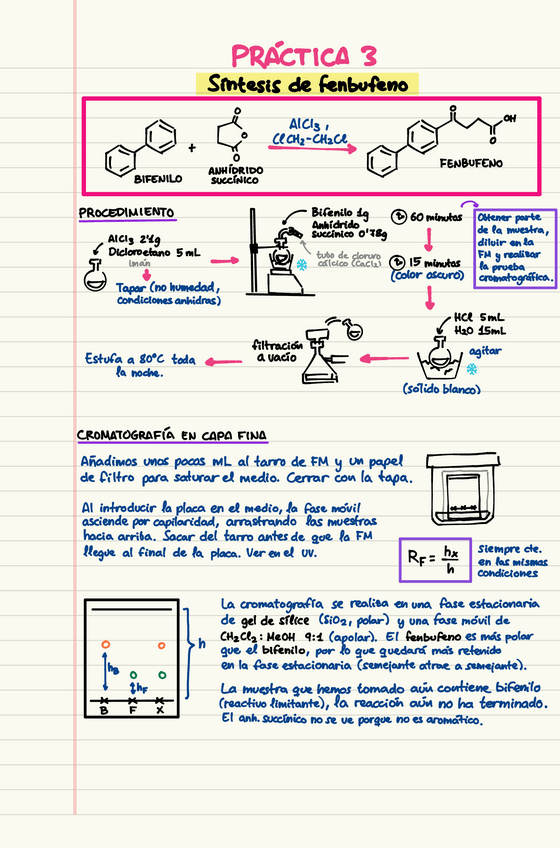 PRÁCTICA 3
Síntesis de fenbufeno
BIFENILO
+
O
O
O
ANHÍDRIDO
SUCCÍNICO
AlCl3,
ClCH2-CH2Cl
O
OH
O
FENBUFENO
PROCEDIMIENTO
AlCl3 2'1g
Dicloroetano 5 mL
Imán
Tapar (no humedad,
condiciones anhidras)
Bifenilo 1g
Anhídrido
succínico 0'78g
tubo de cloruro
cálcico (CaCl2)
60 minutos
15 minutos
(color oscuro)
Obtener parte
de la muestra,
diluir en la
FM y realizar
la prueba
cromatográfica.
HCl 5mL
H2O 15mL
agitar
(sólido blanco)
filtración
a vacío
Estufa a 80°C toda
la noche.
CROMATOGRAFÍA EN CAPA FINA
Añadimos unos pocos mL al tarro de FM y un papel
de filtro para saturar el medio. Cerrar con la tapa.
Al introducir la placa en el medio, la fase móvil
asciende por capilaridad, arrastrando las muestras
hacia arriba. Sacar del tarro antes de que la FM
llegue al final de la placa. Ver en el UV.
RF = hx/h
Siempre cte.
en las mismas
condiciones
h
hB
hF
B F X
La cromatografía se realiza en una fase estacionaria
de gel de sílice (SiO2, polar) y una fase móvil de
CH2Cl2: MeOH 9:1 (apolar). El fenbufeno es más polar
que el bifenilo, por lo que quedará más retenido
en la fase estacionaria (semejante atrae a semejante).
La muestra que hemos tomado aún contiene bifenilo
(reactivo limitante), la reacción aún no ha terminado.
El anh. succínico no se ve porque no es aromático.